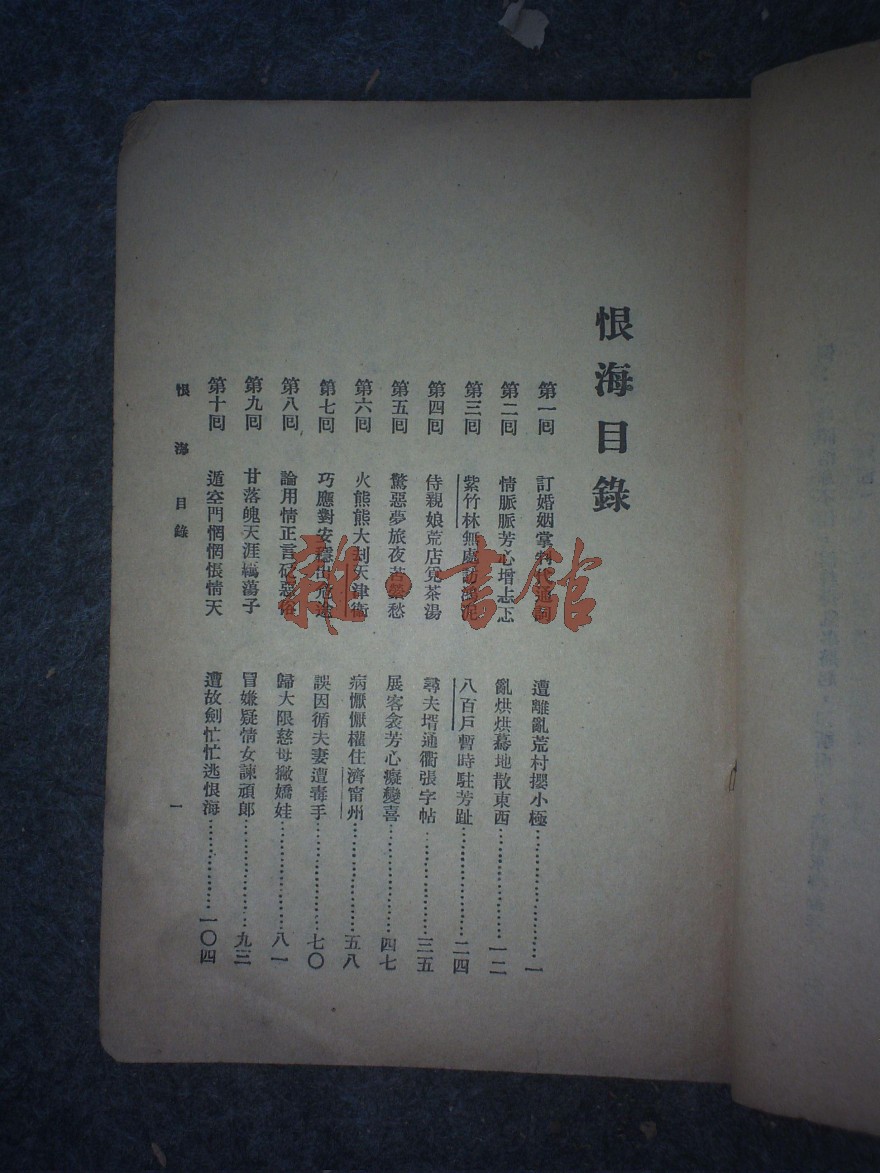 恨海目錄
第一回 訂婚姻掌判代通詞 遭離亂荒村攖小極………………一
第二回 情脈脈芳心增忐忑 亂烘烘驀地散東西………………一二
第三回 紫竹林無處訪鴻泥 八百戶暫時駐芳趾………………二四
第四回 侍親娘荒店覓茶湯 尋夫壻通衢張字帖………………三五
第五回 驚惡夢旅夜苦縈愁 展客衾芳心癡變喜………………四七
第六回 火熊熊大刦天津衛 病懨懨權住濟甯州………………五八
第七回 巧應對安穩出危途 誤因循夫妻遭毒手………………七〇
第八回 論用情正言砭惡俗 歸大限慈母撇嬌娃………………八一
第九回 甘落魄天涯羈蕩子 冒嫌疑情女諫頑郎………………九三
第十回 遁空門惘惘悵情天 遭故劍忙忙逃恨海………………一〇四
恨海 目錄 一
雜·書館